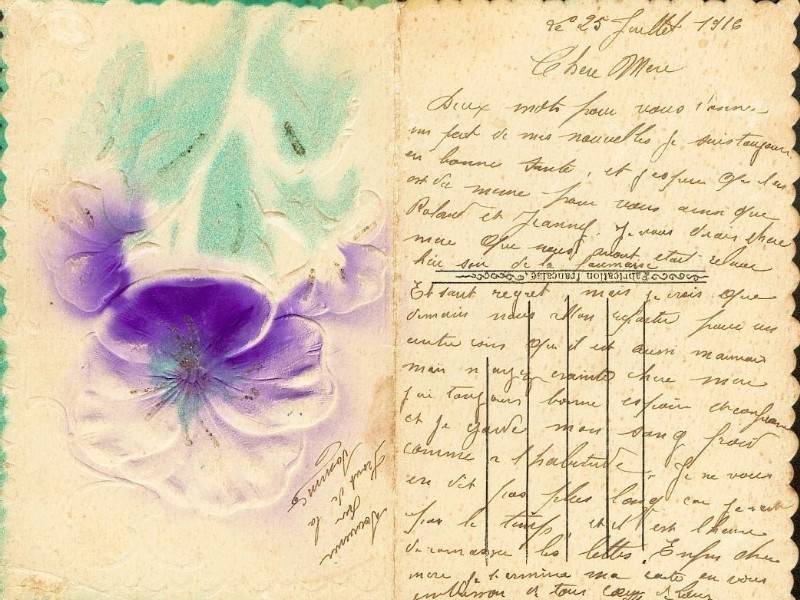 le 25 Juillet 1916
Chere Mere
Deux mots pour vous donner
un peut de mes nouvelles je suis toujours
en bonne santé, et j'espere que il en
est de meme pour vous ainsi que
Roland et Jeanne. Je vous dirais chere
mere que nous avont était relevé
hier soir de la
Fabrication française.
Et sant regret mais je crois que
demain nous allon repartir pour un
autre coins qui il est aussi mauvais
mais n'ayez crainte chere mere
j'ai toujours bonne espoir et confiance
et je garde mon sang froid
comme a l'habitude. Je ne vous
en dit pas plus long car je n'ait
pas le temps et il est l'heure
de ramasser les lettres. Enfin chere
mere je termine ma carte en vous
embrassan de tous coeur
Souvenir
du
front de la
Somme